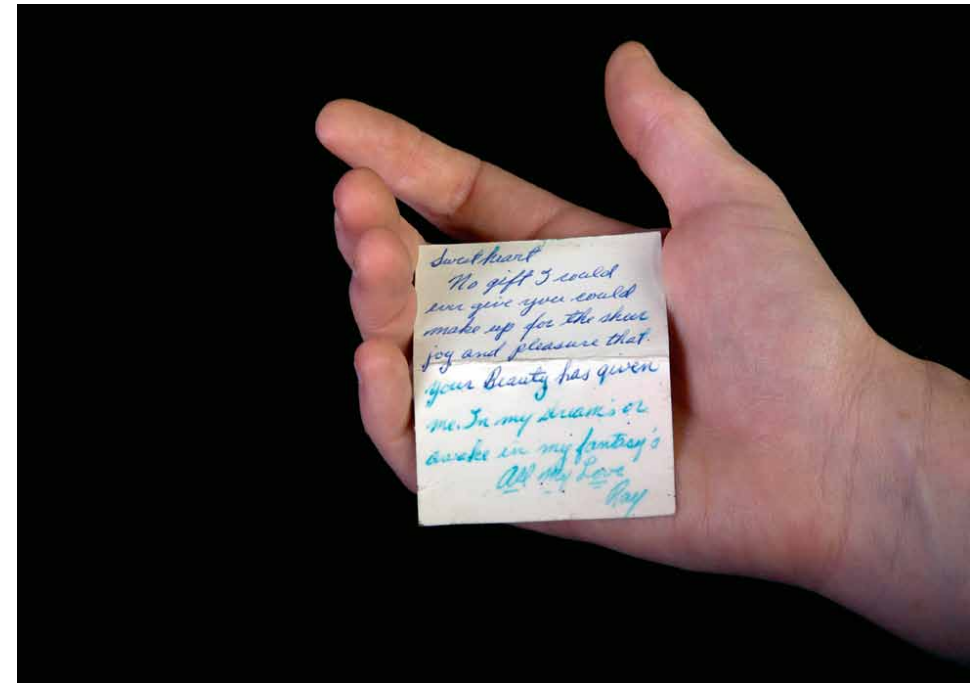 Sweetheart
No gift I could
ever give you could
make up for the shur
joy and pleasure that.
your Beauty has given
me. In my dream's or
awake in my fantasy's
All My Love
Ray